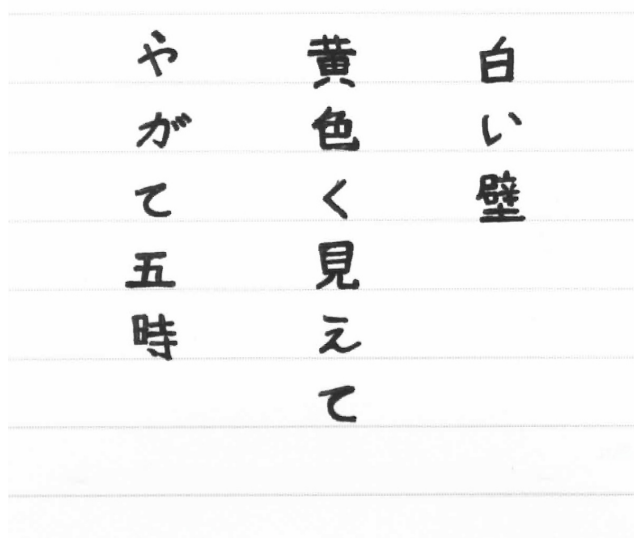 白い壁
黄色く見えて
やがて五時